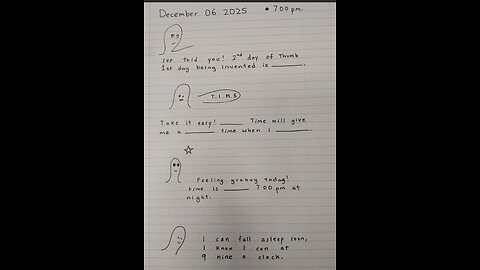 December 06 2025 • 7 00 pm.
see told you! 2nd day of Thumb
1st day being invented is ______.
T. I. M. E
Take it easy! ____ Time will give
me a _____ time when I _____.
Feeling groovy today!
time is ____ 7 00 pm at
night.
I can fall asleep soon,
I know I can at
9 nine o clock.